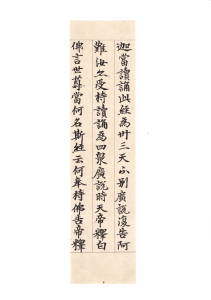 迦當讀誦此經為卅三天分別廣說復告阿
難汝亦受持讀誦為四衆廣說時天帝釋白
佛言世尊當何名斯經云何奉持佛告帝釋